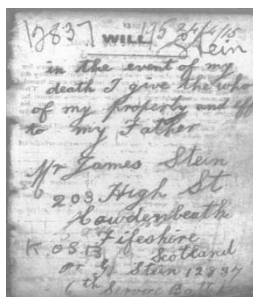 12837 195 24/4/15
WILL Stein
in the event of my
death I give the who
of my property and eff
to my Father
Mr James Stein
203 High St
Cowdenbeath
Fifeshire
K.O.S.B Scotland
Stein 12837
6th Service Batt